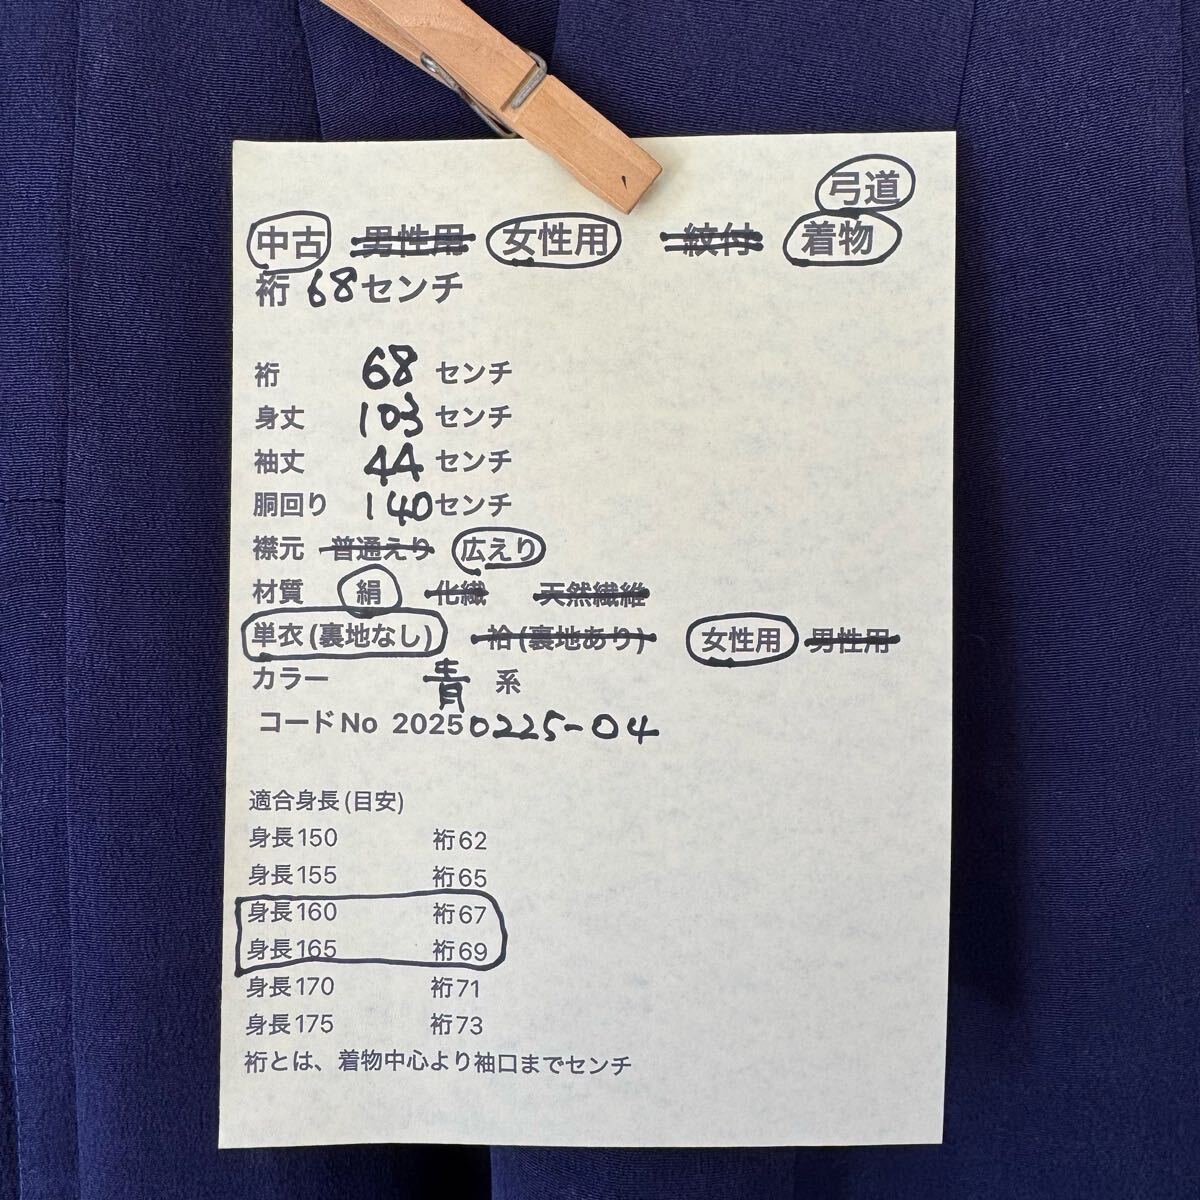 弓道
中古 男性用 女性用 紋付 着物
裄 68センチ
裄 68 センチ
身丈 103 センチ
袖丈 44 センチ
胴回り 140センチ
襟元 普通えり 広えり
材質 絹 化繊 天然繊維
単衣(裏地なし) 袷(裏地あり) 女性用 男性用
カラー 青 系
コードNo 20250225-04
適合身長(目安)
身長150 裄62
身長155 裄65
身長160 裄67
身長165 裄69
身長170 裄71
身長175 裄73
裄とは、着物中心より袖口までセンチ